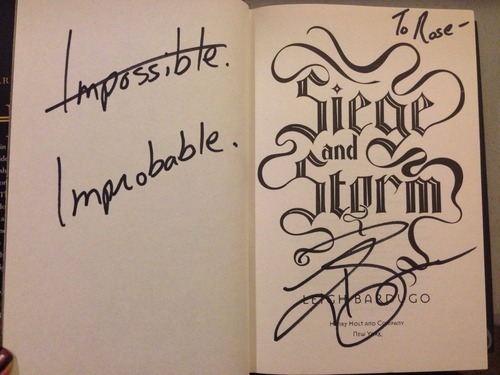 Impossible.
Improbable.
To Rose-
Siege
and
Storm
LEIGH BARDUGO
HENRY HOLT AND COMPANY
NEW YORK